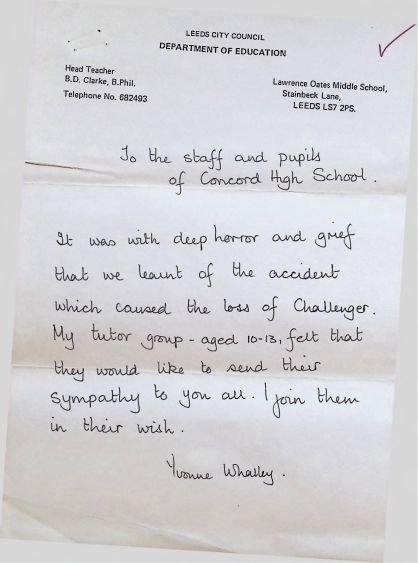 LEEDS CITY COUNCIL
DEPARTMENT OF EDUCATION
Head Teacher
B.D. Clarke, B.Phil.
Telephone No. 682493
Lawrence Oates Middle School,
Stainbeck Lane,
LEEDS LS7 2PS.
To the staff and pupils
of Concord High School.
It was with deep horror and grief
that we learnt of the accident
which caused the loss of Challenger.
My tutor group - aged 10-13, felt that
they would like to send their
sympathy to you all. I join them
in their wish.
Yvonne Whatley.